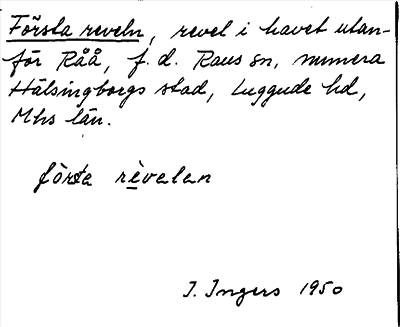 Första reveln, revel i havet utan-
för Råå, f.d. Raus sn, numera
Hälsingborgs stad, Luggude hd,
Mhs län.
förṡta rèvelen
I. Ingers 1950